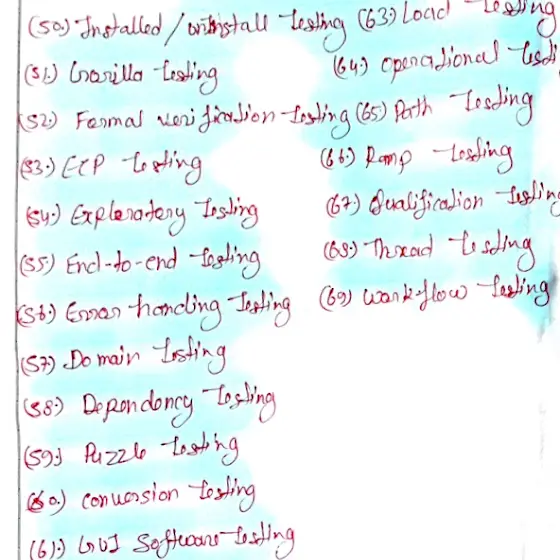 (50.) Installed / uninstall testing
(51.) Gorilla testing
(52.) Formal verification testing
(53.) ECP testing
(54.) Exploratory Testing
(55) End-to-end testing
(56.) Error-handling Testing
(57) Domain testing
(58.) Dependency testing
(59.) Puzzle testing
(60.) conversion testing
(61.) GUI Software testing
(63.) Load testing
(64.) operational testi
(65) Path testing
(66.) Ramp testing
(67.) Qualification testing
(68.) Thread testing
(69) workflow testing